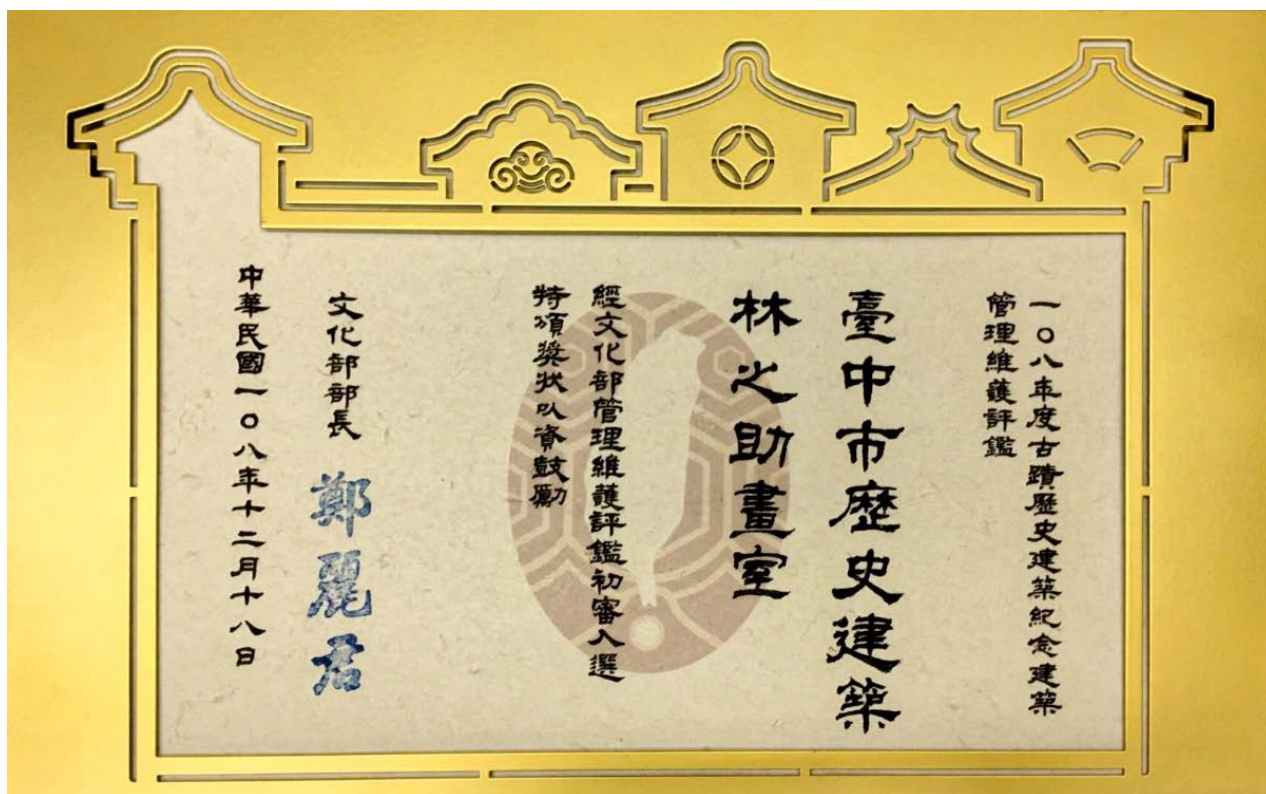 一〇八年度古蹟歷史建築紀念建築
管理維護評鑑
臺中市歷史建築
林之助畫室
經文化部管理維護評鑑初審入選
特頒獎狀以資鼓勵
文化部部長 鄭麗君
中華民國一〇八年十二月十八日